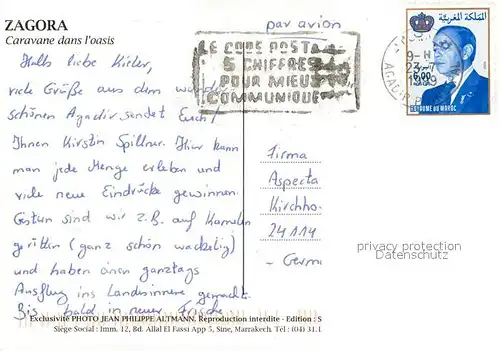 ZAGORA
Caravane dans l'oasis
par avion
LE CODE POSTAL
5 CHIFFRES
POUR MIEUX
COMMUNIQUER
المملكة المغربية
6,00
ROYAUME DU MAROC
AGADIR
Hallo liebe Kieler,
viele Grüße aus dem wunder
schönen Agadir sendet Euch/
Ihnen Kirstin Spillner. Hier kann
man jede Menge erleben und
viele neue Eindrücke gewinnen.
Gestern sind wir z.B. auf Kamelen
geritten (ganz schön wackelig)
und haben einen ganztags
Ausflug ins Landesinnere gemacht.
Bis bald in neuer Frische
Firma
Aspecta
Kirchho
24114
- Germa
privacy protection
Datenschutz
Exclusivité PHOTO JEAN PHILIPPE ALTMANN. Reproduction interdite - Edition : S
Siège Social : Imm. 12, Bd. Allal El Fassi App 5, Sine, Marrakech. Tél : (04) 31.1